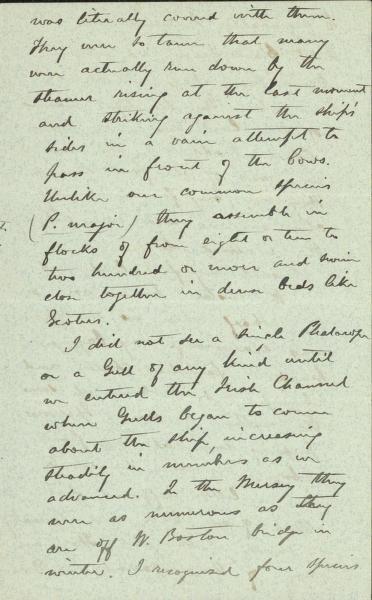 was literally covered with them.
They were so tame that many
were actually run down by the
steamer rising at the last moment
and striking against the ship's
sides in a vain attempt to
pass in front of the bows.
Unlike our common species
(P. major) they assemble in
flocks of from eight or ten to
two hundred or more and swim
close together in dense beds like
Scoters.
I did not see a single Phalarope
or a Gull of any kind until
we entered the Irish Channel
where Gulls began to come
about the ship, increasing
steadily in numbers as we
advanced. In the Mersey they
were as numerous as they
are off W. Boston bridge in
winter. I recognized four species